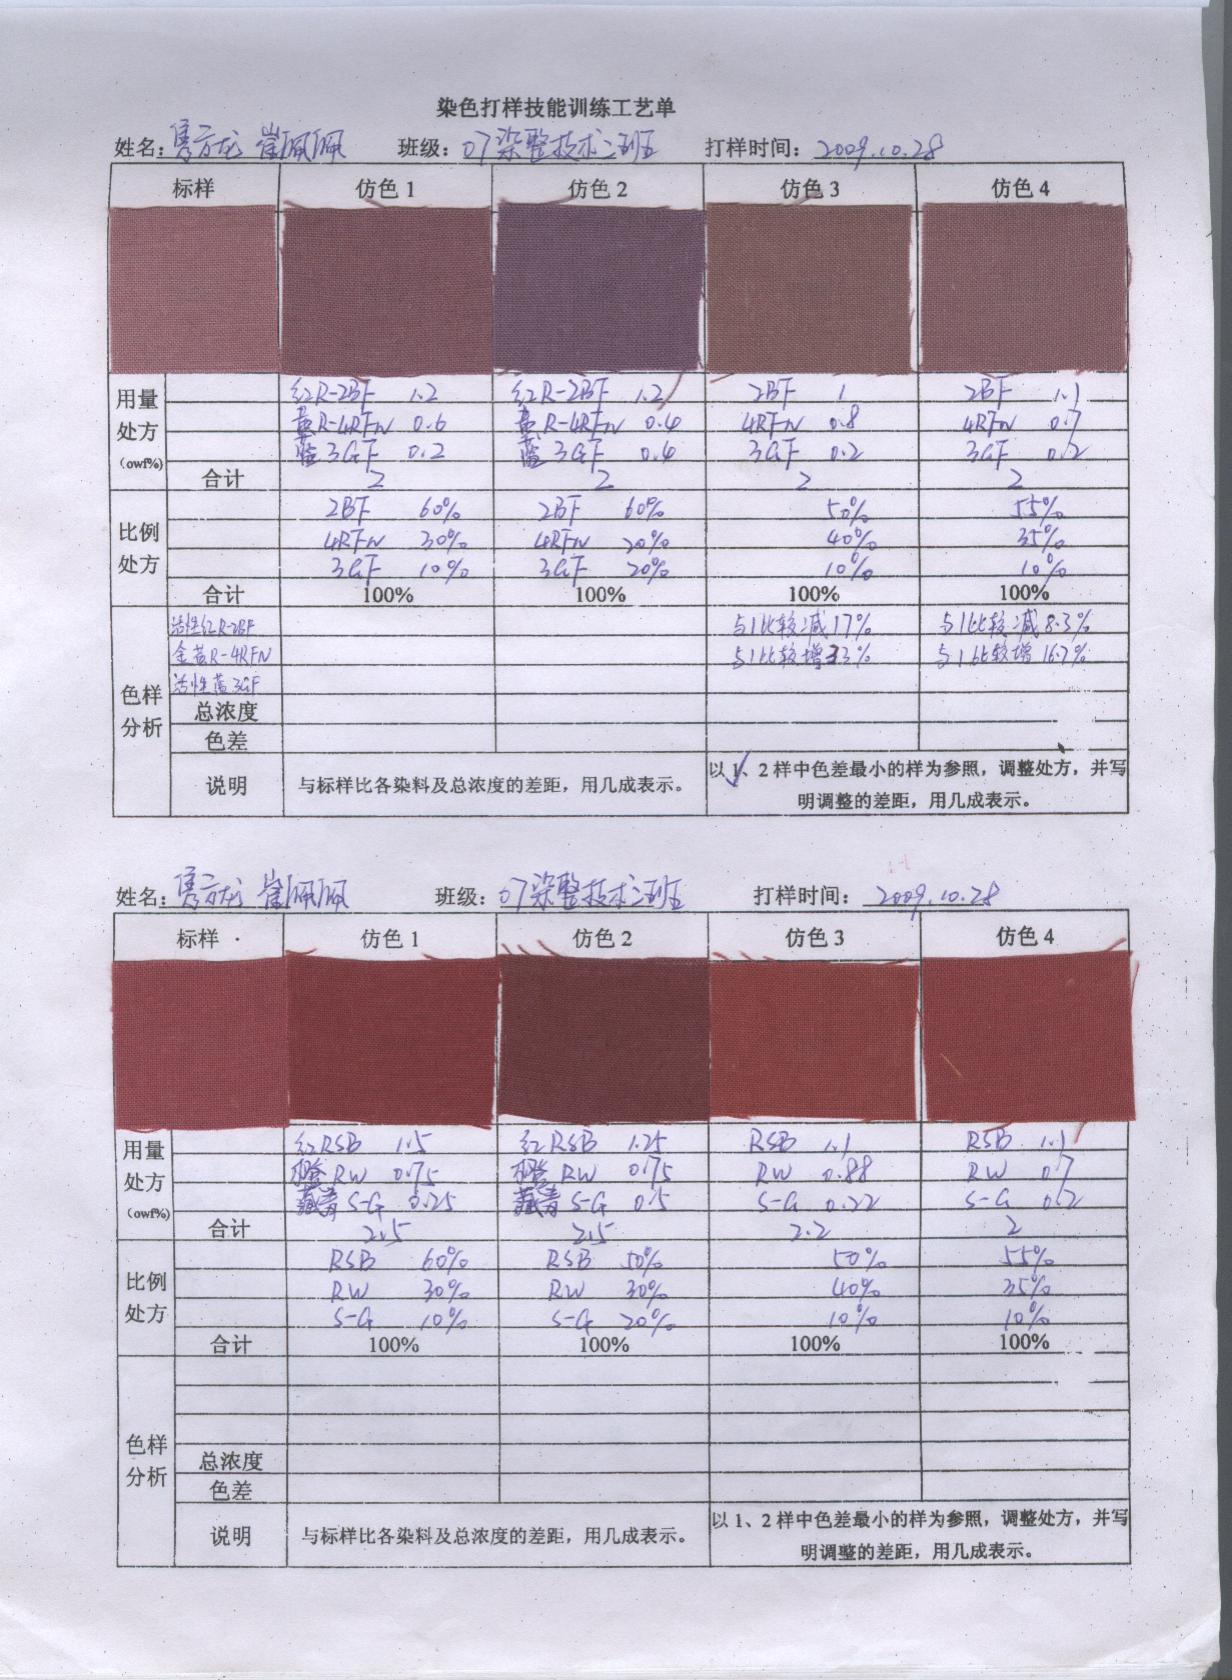 染色打样技能训练工艺单
姓名: 崔佩佩 班级: 07染整技术三班 打样时间: 2009.10.28
标样 仿色 1 仿色 2 仿色 3 仿色 4
用量处方(owf%) 红R-2BF 1.2 红R-2BF 1.2 2BF 1 2BF 1.1
黄R-4RFN 0.6 黄R-4RFN 0.4 4RFN 0.8 4RFN 0.7
蓝3GF 0.2 蓝3GF 0.4 3GF 0.2 3GF 0.2
合计 2 2 2 2
比例处方 2BF 60% 2BF 60% 50% 55%
4RFN 30% 4RFN 20% 40% 35%
3GF 10% 3GF 20% 10% 10%
合计 100% 100% 100% 100%
色样分析 活性红R-2BF 与1比较减17% 与1比较减8.3%
金黄R-4RFN 与1比较增33% 与1比较增16.7%
活性蓝3GF
总浓度
色差
说明 与标样比各染料及总浓度的差距，用几成表示。 以 1、2 样中色差最小的样为参照，调整处方，并写
明调整的差距，用几成表示。
姓名: 崔佩佩 班级: 07染整技术三班 打样时间: 2009.10.28
标样 仿色 1 仿色 2 仿色 3 仿色 4
用量处方(owf%) 红RSB 1.5 红RSB 1.25 RSB 1.1 RSB 1.1
橙RW 0.75 橙RW 0.75 RW 0.88 RW 0.7
藏青S-G 0.25 藏青S-G 0.5 S-G 0.22 S-G 0.2
合计 2.5 2.5 2.2 2
比例处方 RSB 60% RSB 50% 50% 55%
RW 30% RW 30% 40% 35%
S-G 10% S-G 20% 10% 10%
合计 100% 100% 100% 100%
色样分析
总浓度
色差
说明 与标样比各染料及总浓度的差距，用几成表示。 以 1、2 样中色差最小的样为参照，调整处方，并写
明调整的差距，用几成表示。